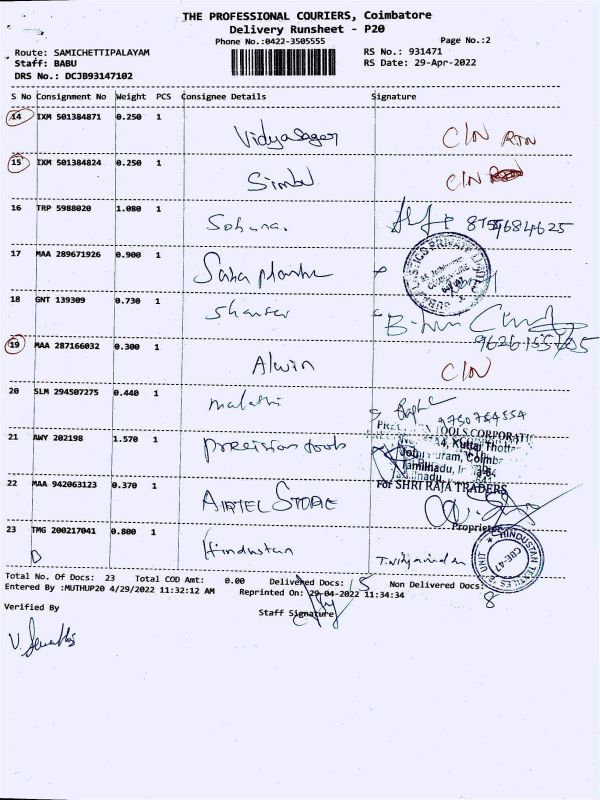 THE PROFESSIONAL COURIERS, Coimbatore
Delivery Runsheet - P20
Phone No.:0422-3505555
Page No.:2
Route: SAMICHETTIPALAYAM
RS No.: 931471
Staff: BABU
RS Date: 29-Apr-2022
DRS No.: DCJB93147102
S No Consignment No Weight PCS Consignee Details Signature
14 IXM 501384871 0.250 1 Vidyasagar C/N RTN
15 IXM 501384824 0.250 1 C/N
16 TRP 5988020 1.080 1 Sohana.
17 MAA 289671926 0.900 1
18 GNT 139309 0.730 1
19 MAA 287166032 0.300 1 Alwin C/N
20 SLM 294507275 0.440 1 malathi 9750784554
21 AWY 202198 1.570 1 precision tools
TOOLS CORPORATI
22 MAA 942063123 0.370 1 AIRTEL STORE
For SHRI RAJA TRADERS
Proprietor
23 TMG 200217041 0.800 1 Hindustan
HINDUSTAN TEXTILES UNIT CBE-47
Total No. Of Docs: 23 Total COD Amt: 0.00 Delivered Docs: 15 Non Delivered Docs: 8
Entered By :MUTHUP20 4/29/2022 11:32:12 AM Reprinted On: 29-04-2022 11:34:34
Verified By
Staff Signature